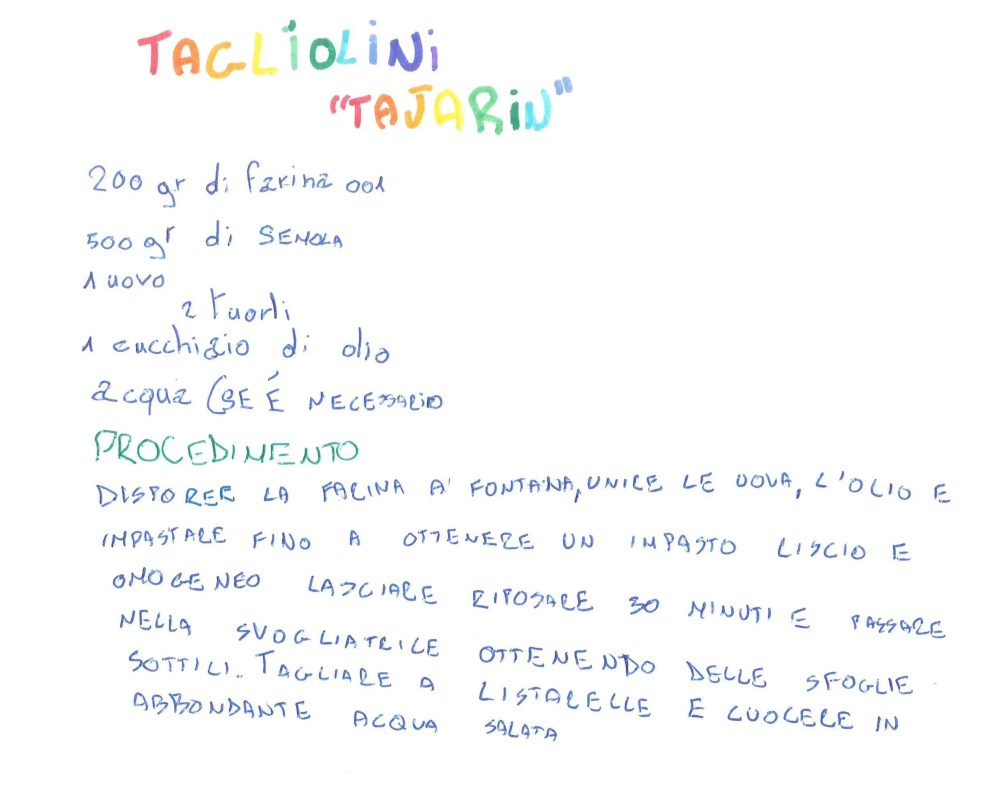 TAGLIOLINI
"TAJARIN"
200 gr di farina 001
500 gr di SEMOLA
1 uovo
2 tuorli
1 cucchiaio di olio
acqua (SE É NECESSARIO
PROCEDIMENTO
DISPORER LA FARINA A' FONTANA, UNIRE LE UOVA, L'OLIO E
IMPASTARE FINO A OTTENERE UN IMPASTO LISCIO E
OMOGENEO LASCIARE RIPOSARE 30 MINUTI E PASSARE
NELLA SVOGLIATRICE OTTENENDO DELLE SFOGLIE
SOTTILI. TAGLIARE A LISTARELLE E CUOCERE IN
ABBONDANTE ACQUA SALATA